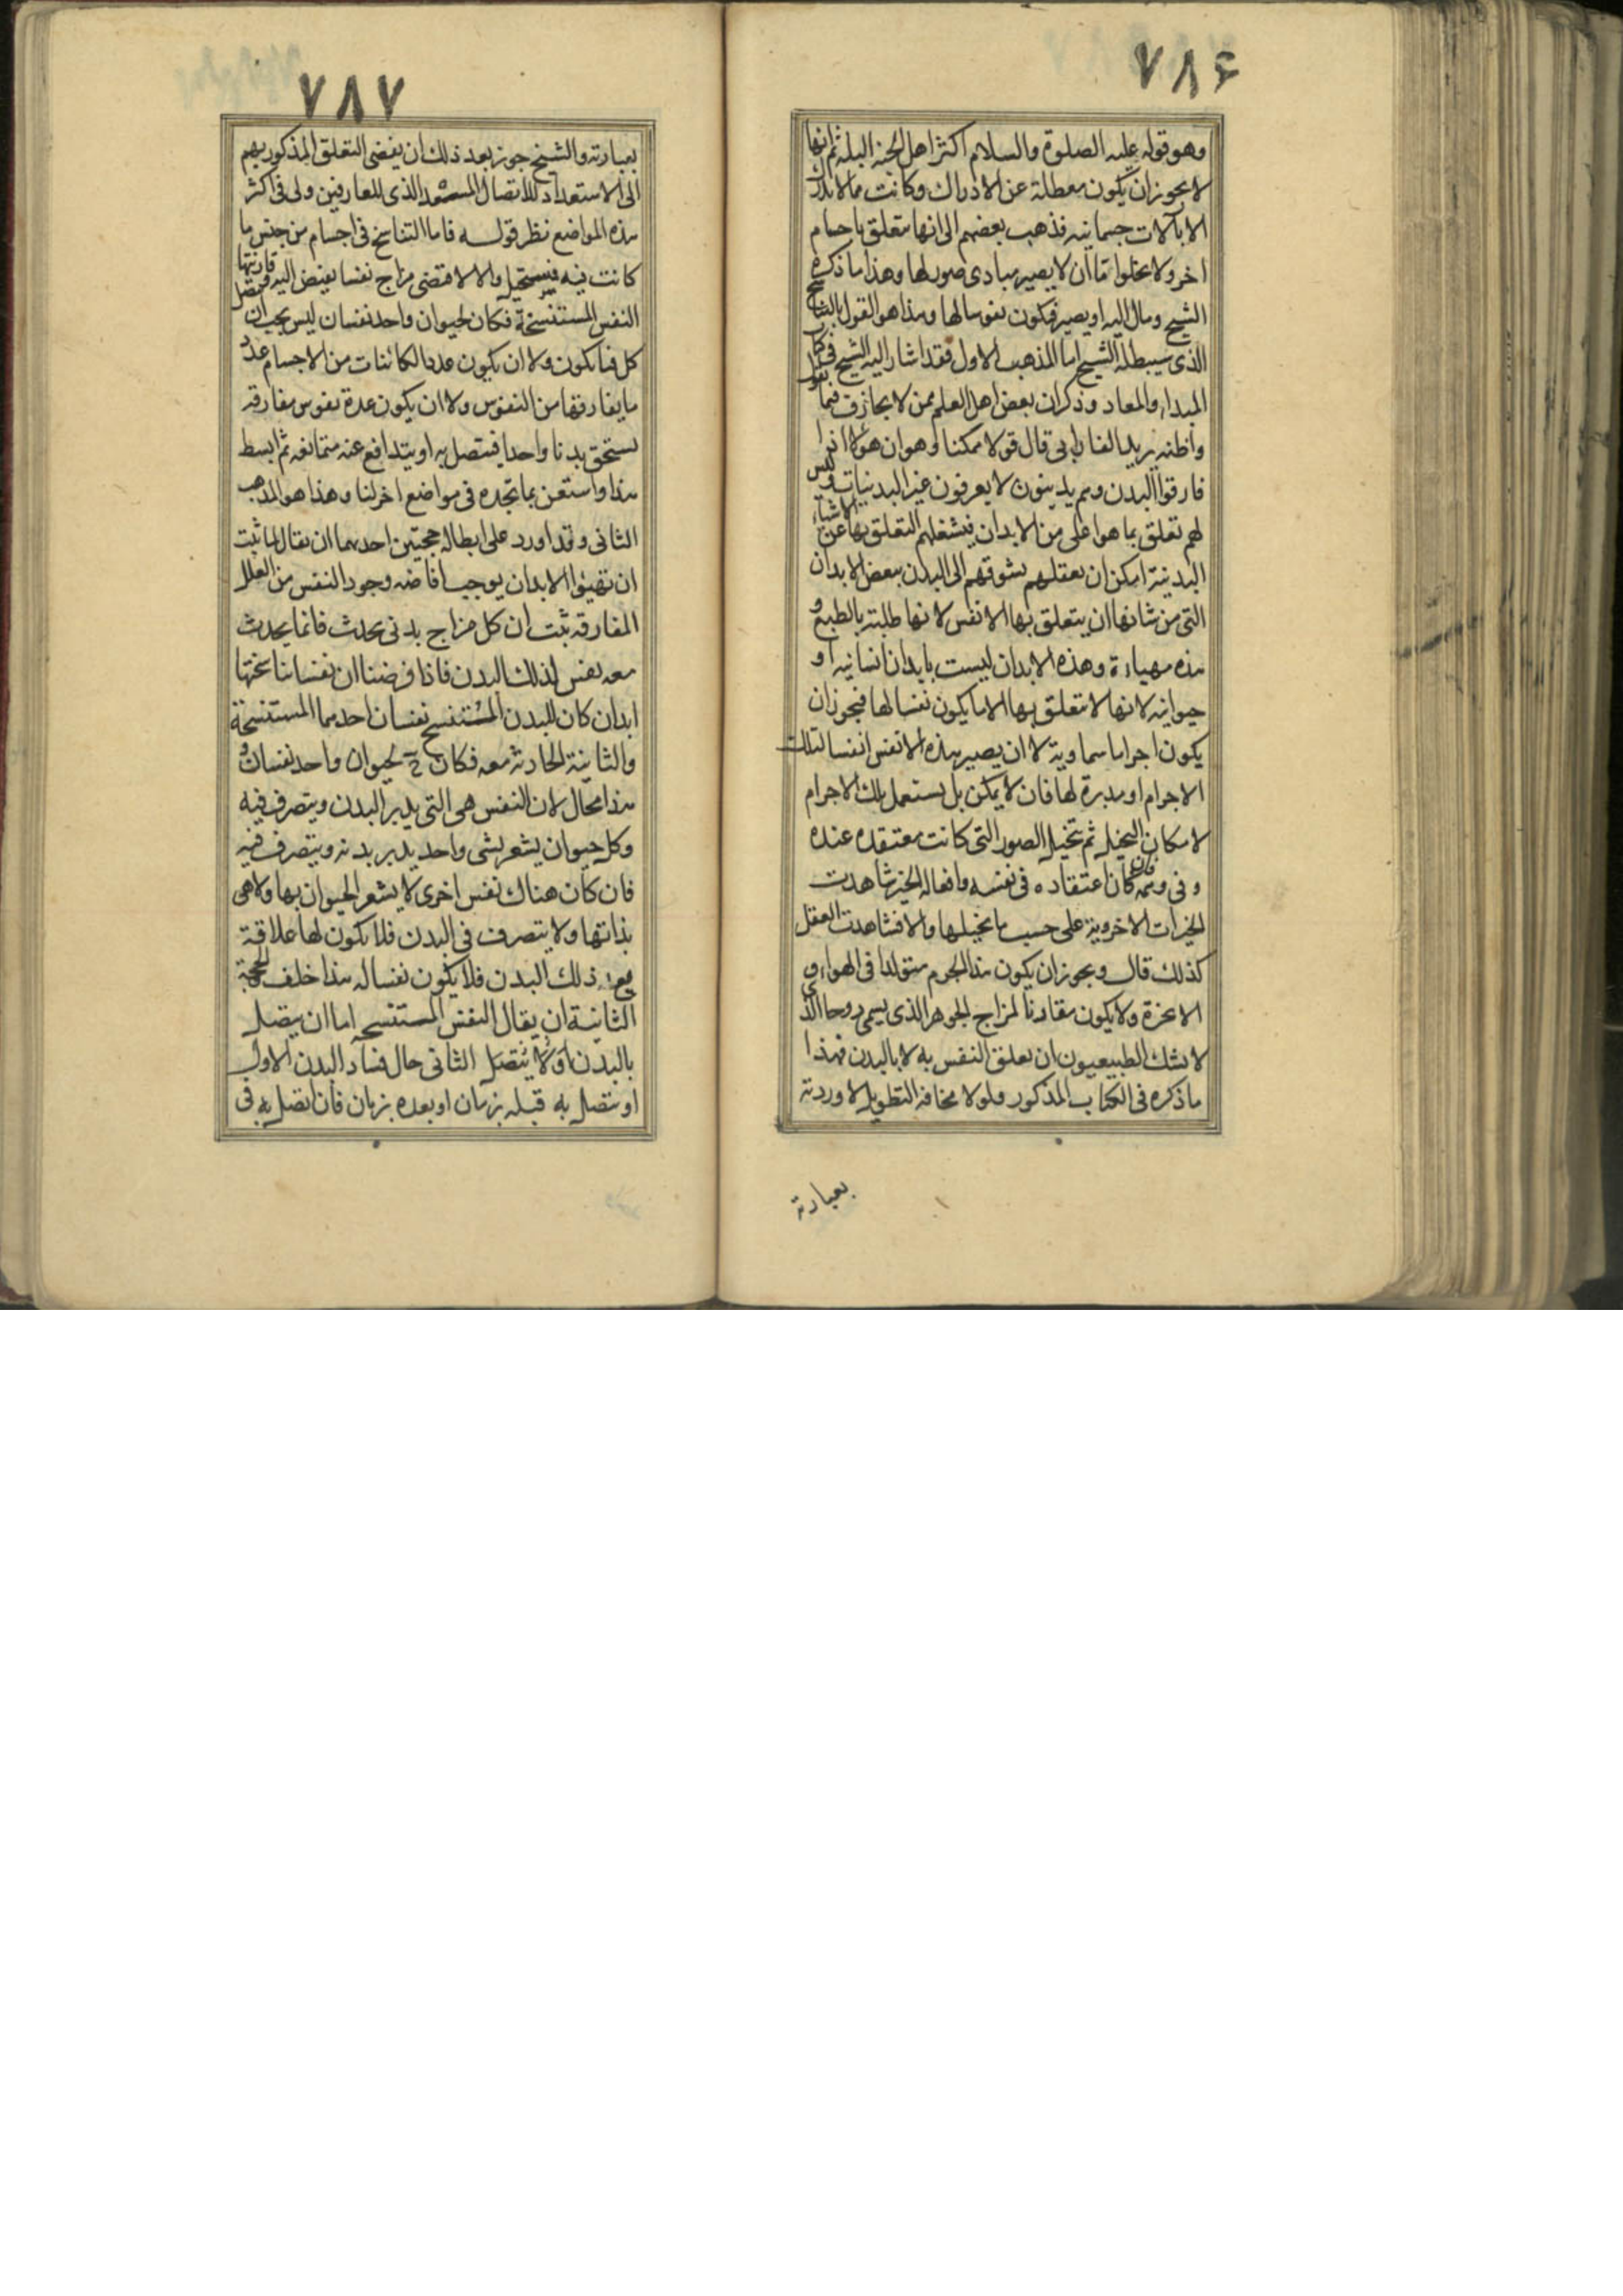 ٧٨۶
وهو قوله عليه الصلوة والسلام اكثر اهل الجنة البله ثم انها
لا يجوز ان يكون معطلة عن الادراك وكانت مما لا يدرك
الا بآلات جسمانيه فذهب بعضهم الى انها متعلق باجسام
اخر ولا يخلوا اما ان لا يصير مبادى صور لها وهذا ما ذكره
الشيخ ومال اليه او يصير فيكون نفوسا لها وهذا هو القول بالتناسخ
الذى سيبطله الشيخ اما المذهب الاول فقد اشار اليه الشيخ فى كتاب
المبدا والمعاد وذكر ان بعض اهل العلم ممن لا يجازف فيما يقول
واظنه يريد الفارابى قال قولا ممكنا وهو ان هؤلا اذا
فارقوا البدن وهم بدنيون لا يعرفون غير البدنيات وليس
لهم تعلق بما هو اعلى من الابدان فيشغلهم التعلق بها عن الاشياء
البدنية امكن ان يعقلهم بشوقهم الى البدن ببعض الابدان
التى من شانها ان يتعلق بها الانفس لانها طلبته بالطبع و
هذه مهياءة وهذه الابدان ليست بابدان انسانيه او
حيوانيه لانها لا متعلق بها الا ما يكون نفسا لها فيجوز ان
يكون اجراما سماوية لا ان يصير هذه الانفس انفسا لتلك
الاجرام او مدبرة لها فان لا يمكن بل يستعمل تلك الاجرام
لامكان التخيل ثم تخيل الصور التى كانت معتقده عنده
وفى وهمه فان كان اعتقاده فى نفسه وافعاله الخير شاهدت
الخيرات الاخروية على حسب ما تخيلها والا فشاهدت العقل
كذلك قال ويجوز ان يكون هذا الجرم متولدا فى الهواء و
الاعزة ولا يكون مقارنا لمزاج الجوهر الذى يسمى روحا الذى
لا يشك الطبيعيون ان تعلق النفس به لا بالبدن فهذا
ما ذكره فى الكتاب المذكور ولولا مخافة التطويل لاوردته
بعبارته
٧٨٧
بعبارته والشيخ جوز بعد ذلك ان يفضى التعلق المذكور بهم
الى الاستعداد للاتصال المسعد الذى للعارفين ولى فى اكثر
هذه المواضع نظر قوله فاما التناسخ فى اجسام من جنس ما
كانت فيه فيستحيل والا لاقتضى مزاج نفسا يفيض اليه وقارنتها
النفس المستنسخة فكان لحيوان واحد نفسان ليس يجب ان يتصل
كل فنا بكون ولا ان يكون عدد الكائنات من الاجسام عدد
ما يفارقها من النفوس ولا ان يكون عدة نفوس مفارقه
يستحق بدنا واحدا فيتصل به او يتدافع عنه متمانعه ثم ابسط
هذا واستعن بما تجده فى مواضع اخر لنا وهذا هو المذهب
الثانى وقد اورد على ابطاله حجتين احدهما ان يقال لما ثبت
ان تهيئوا الابدان يوجب افاضه وجود النفس من العلل
المفارقه ثبت ان كل مزاج بدنى يحدث فانما يحدث
معه نفس لذلك البدن فاذا فرضنا ان نفسا تناسختها
ابدان كان للبدن المستنسخ نفسان احدهما المستنسخة
والثانية الحادثه معه فكان ح لحيوان واحد نفسان و
هذا محال لان النفس هى التى يدبر البدن ويتصرف فيه
وكل حيوان يشعر بشى واحد يدبر بدنه ويتصرف فيه
فان كان هناك نفس اخرى لا يشعر الحيوان بها ولا هى
بذاتها ولا يتصرف فى البدن فلا يكون لها علاقة
مع ذلك البدن فلا يكون نفسا له هذا خلف الحجة
الثانية ان يقال النفس المستنسخه اما ان يتصل
بالبدن او لا يتصل الثانى حال فساد البدن الاول
او يتصل به قبله بزمان او بعده بزمان فان اتصل به فى